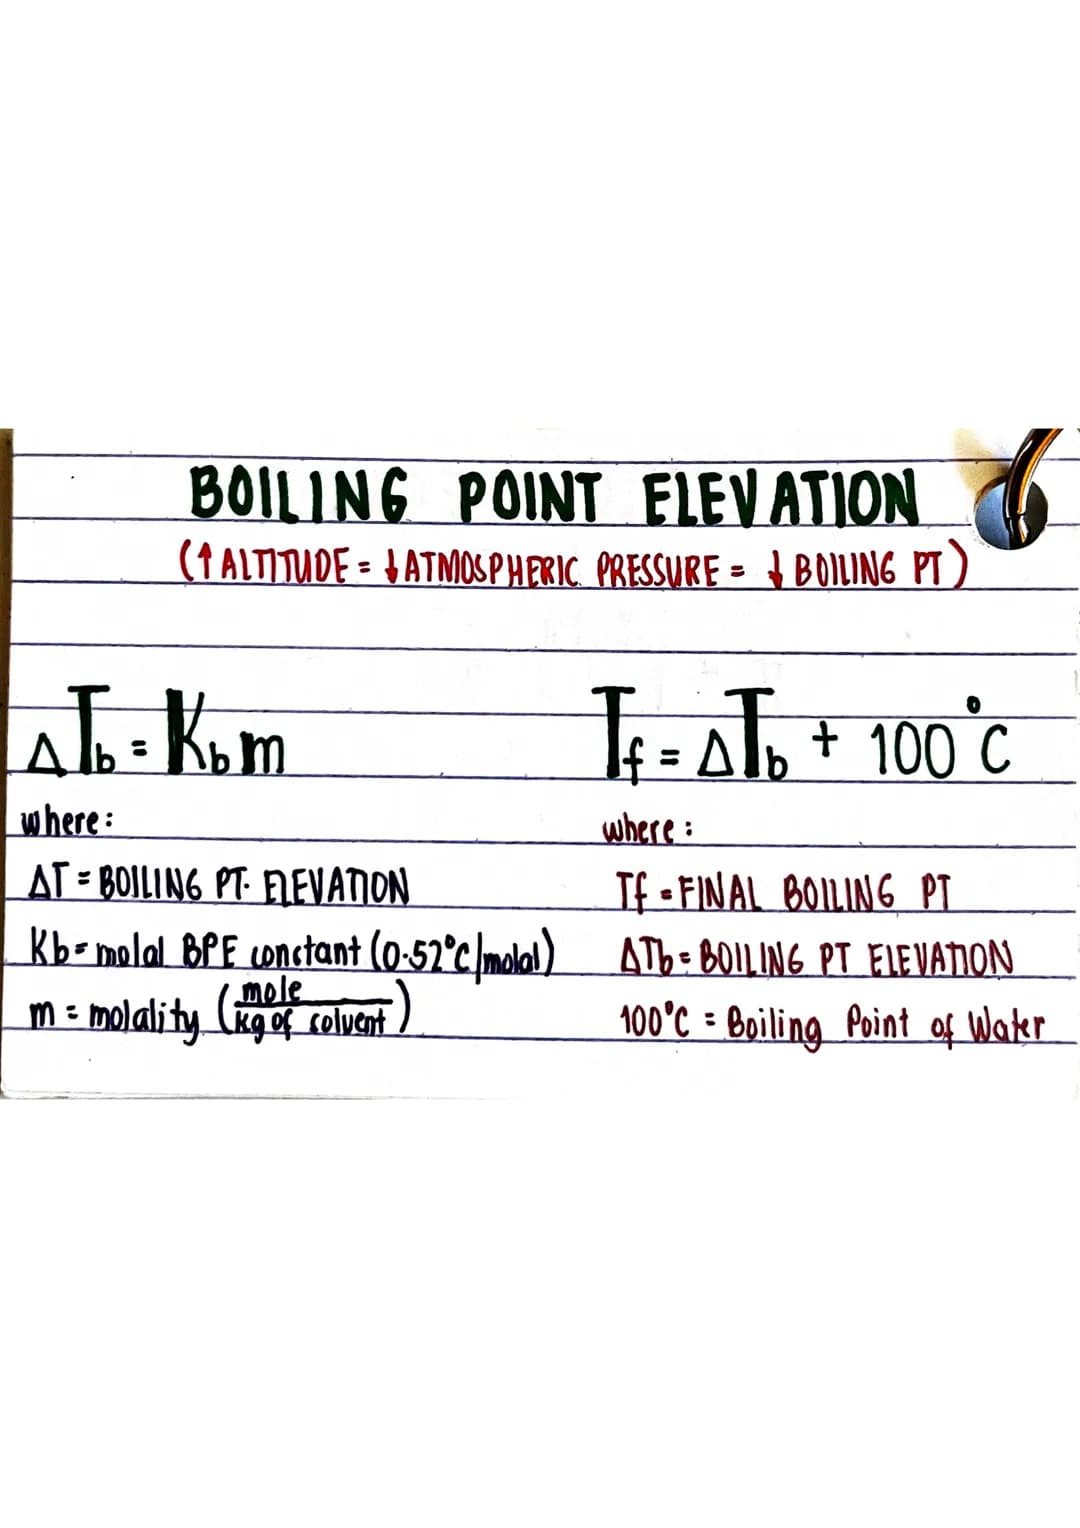 BOILING POINT ELEVATION
(↑ ALTITUDE = ↓ ATMOSPHERIC PRESSURE = ↓ BOILING PT)
ΔTb = Kbm
where:
ΔT = BOILING PT. ELEVATION
Kb = molal BPE constant (0.52°C/molal)
m = molality (mole/kg of solvent)
Tf = ΔTb + 100°C
where:
Tf = FINAL BOILING PT
ΔTb = BOILING PT ELEVATION
100°C = Boiling Point of Water